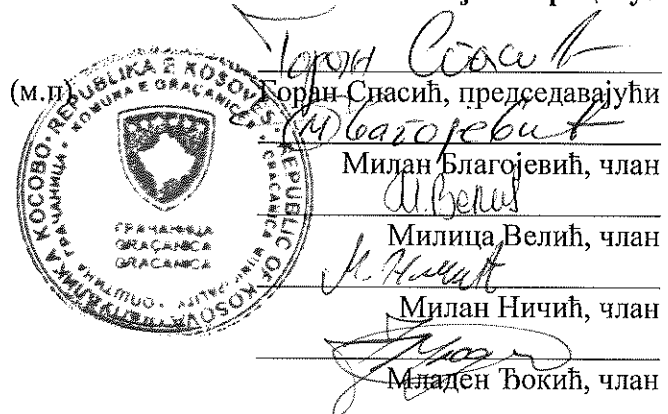 Горан Спасић
(м.п)
Горан Спасић, председавајући
Милан Благојевић, члан
М. Велић
Милица Велић, члан
М. Ничић
Милан Ничић, члан
Младен Ђокић, члан
REPUBLIKA E KOSOVËS · REPUBLIC OF KOSOVA · РЕПУБЛИКА КОСОВО
KOMUNA E GRAÇANICËS
ОПШТИНА ГРАЧАНИЦА
ГРАЧАНИЦА
GRAÇANICA
GRAČANICA